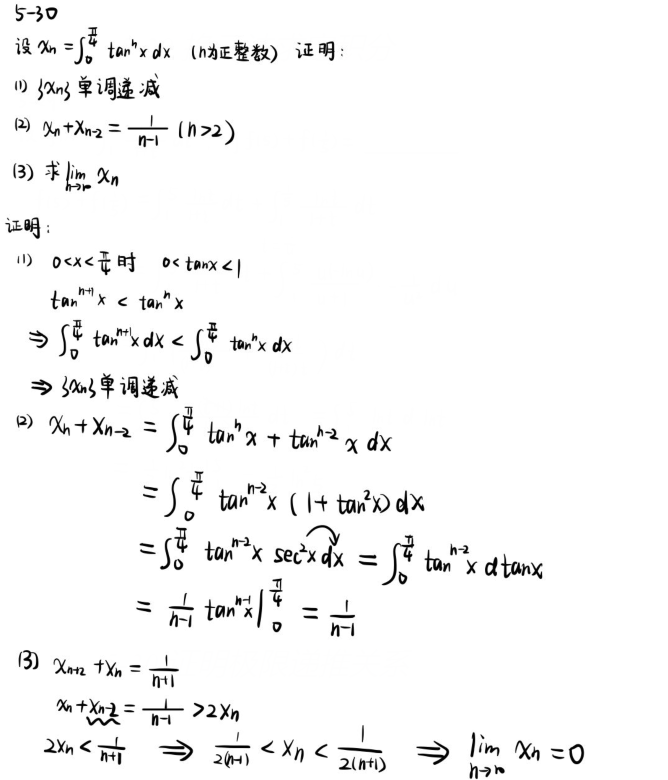 5-30
设 xₙ = ∫₀^{π/4} tanⁿx dx (n为正整数) 证明:
(1) {xₙ}单调递减
(2) xₙ + xₙ₋₂ = 1/(n-1) (n>2)
(3) 求 lim_{n→∞} xₙ
证明:
(1) 0<x<π/4 时 0<tanx<1
tanⁿ⁺¹x < tanⁿx
⇒ ∫₀^{π/4} tanⁿ⁺¹x dx < ∫₀^{π/4} tanⁿx dx
⇒ {xₙ}单调递减
(2) xₙ + xₙ₋₂ = ∫₀^{π/4} tanⁿx + tanⁿ⁻²x dx
= ∫₀^{π/4} tanⁿ⁻²x (1+tan²x)dx
= ∫₀^{π/4} tanⁿ⁻²x sec²x dx = ∫₀^{π/4} tanⁿ⁻²x dtanx
= 1/(n-1) tanⁿ⁻¹x |₀^{π/4} = 1/(n-1)
(3) xₙ₊₂ + xₙ = 1/(n+1)
xₙ + xₙ₋₂ = 1/(n-1) > 2xₙ
2xₙ < 1/(n+1) ⇒ 1/(2(n-1)) < xₙ < 1/(2(n+1)) ⇒ lim_{n→∞} xₙ = 0